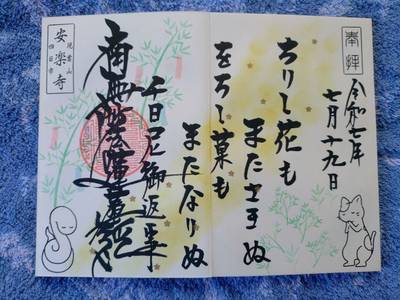 奉拝
令和七年
七月十九日
ちりし花も
またさきぬ
をちし菓も
またなりぬ
千日尼御返事
南無妙法蓮華経
安楽寺
四日市